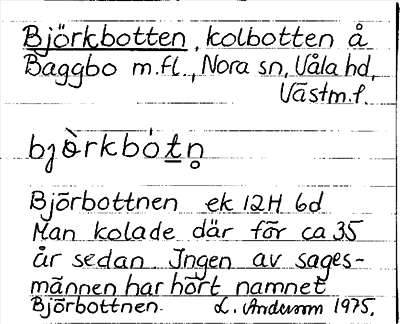 Björkbotten, kolbotten å
Baggbo m.fl., Nora sn, Våla hd,
Västm.l.
bjò̀rkbót̲n̥
Björbottnen ek 12H 6d
Man kolade där för ca 35
år sedan Ingen av sages-
männen har hört namnet
Björbottnen. L. Anderson 1975.